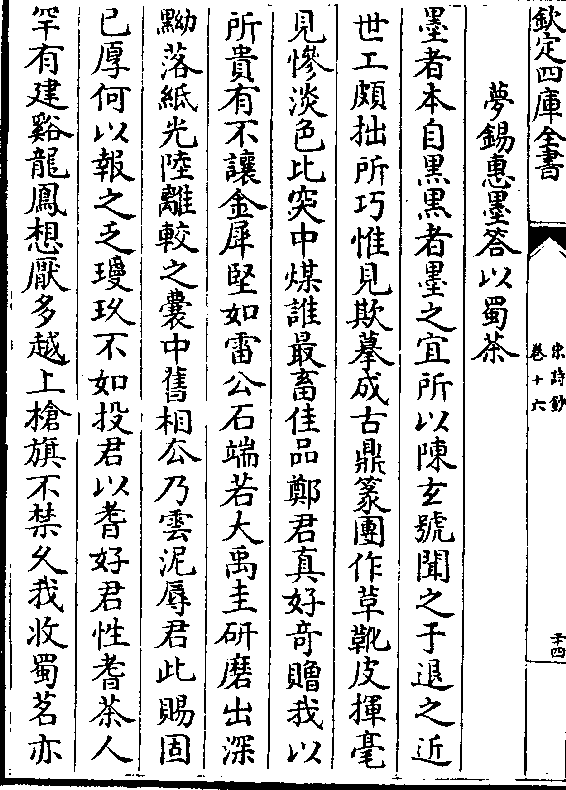 欽定四庫全書
宋詩鈔
卷十六
二十四
夢錫惠墨答以蜀茶
墨者本自黑黑者墨之宜所以陳玄號聞之于退之近
世工頗拙所巧惟見欺摹成古鼎篆團作革靴皮揮毫
見慘淡色比突中煤誰最畜佳品鄭君真好奇贈我以
所貴有不讓金犀堅如雷公石端若大禹圭研磨出深
黝落紙光陸離較之囊中舊相公乃雲泥辱君此賜固
已厚何以報之乏瓊玖不如投君以耆好君性耆茶人
罕有建谿龍鳳想厭多越上槍旗不禁久我收蜀茗亦